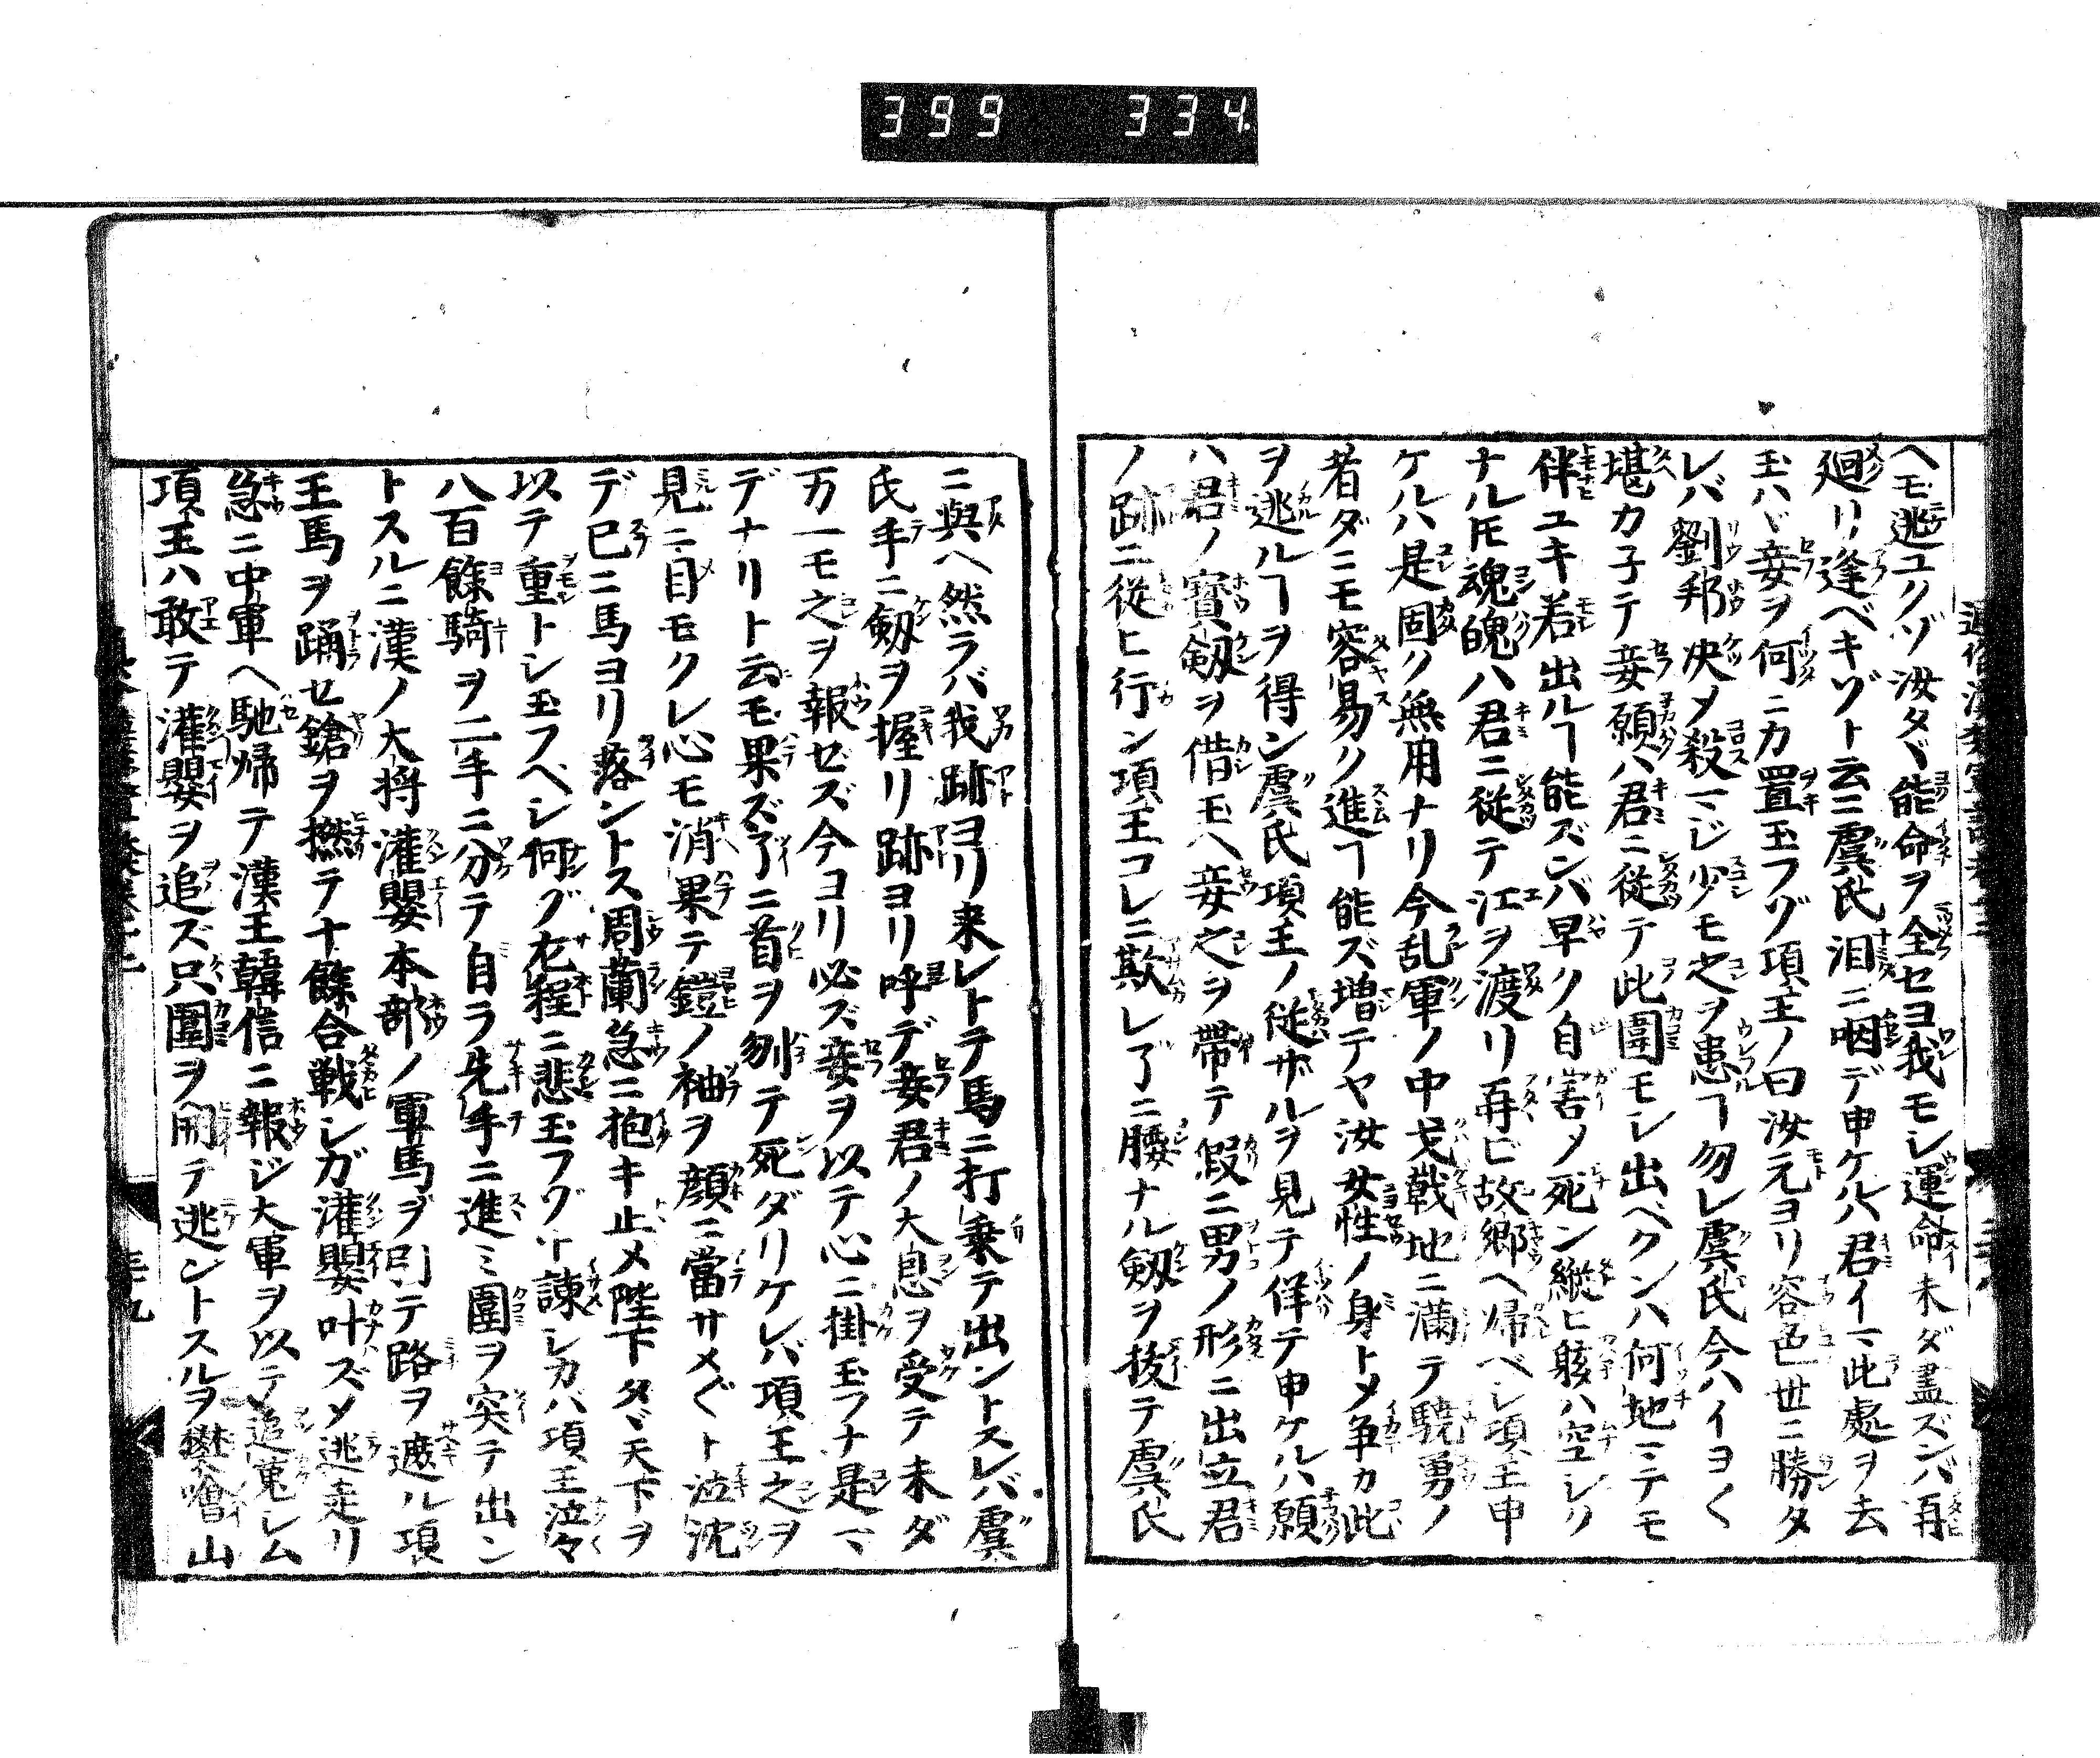 399 334
ヘモ逃ユクゾ汝タヾ能命ヲ全セヨ我モシ運命未ダ盡ズンバ再
廻リ逢ベキゾト云ニ虞氏泪ニ咽デ申ケルハ君イマ此處ヲ去
玉ハヾ妾ヲ何ニカ置玉フゾ項王ノ曰汝元ヨリ容色世ニ勝タ
レバ劉邦决メ殺マジ少モ之ヲ患ヿ勿レ虞氏今ハイヨ〱
堪カ子テ妾願ハ君ニ從テ此圍モシ出ベクンハ何地ミテモ
伴ユキ若出ルヿ能ズンバ早ク自害メ死ン縱ヒ骸ハ空シク
ナルトモ魂魄ハ君ニ從テ江ヲ渡リ再ビ故郷ヘ帰ベシ項王申
ケルハ是固ク無用ナリ今乱軍ノ中戈戟地ニ満テ驍勇ノ
者ダニモ容易ク進ヿ能ズ増テヤ汝女性ノ身トメ争カ此
ヲ逃ルヿヲ得ン虞氏項王ノ從ザルヲ見テ佯テ申ケルハ願
ハ君ノ寳劔ヲ借玉ヘ妾之ヲ帶テ假ニ男ノ形ニ出立君
ノ跡ニ從ヒ行ン項王コレニ欺レ了ニ腰ナル劔ヲ抜テ虞氏
ニ與ヘ然ラバ我跡ヨリ来レトテ馬ニ打乗テ出ントスレバ虞
氏手ニ劔ヲ握リ跡ヨリ呼デ妾君ノ大息ヲ受テ未ダ
万一モ之ヲ報ゼズ今ヨリ必ズ妾ヲ以テ心ニ掛玉フナ是マ
デナリト云モ果ズ了ニ首ヲ刎テ死ダリケレバ項王之ヲ
見ニ目モクレ心モ消果テ鎧ノ袖ヲ顔ニ當サメ〲ト泣沈
デ已ニ馬ヨリ落ントス周蘭急ニ抱キ止メ陛下タヾ天下ヲ
以テ重トシ玉フヘシ何グ左程ニ悲玉フゾト諫シカハ項王泣々
八百餘騎ヲ二手ニ分テ自ラ先手ニ進ミ圍ヲ突テ出ン
トスルニ漢ノ大将灌嬰本部ノ軍馬ヲ引テ路ヲ遮ル項
王馬ヲ踊セ鎗ヲ撚テ十餘合戦シガ灌嬰叶ズメ逃走リ
急ニ中軍ヘ馳帰テ漢王韓信ニ報ジ大軍ヲ以テ追蒐シム
項王ハ敢テ灌嬰ヲ追ズ只圍ヲ開テ逃ントスルヲ樊噲山